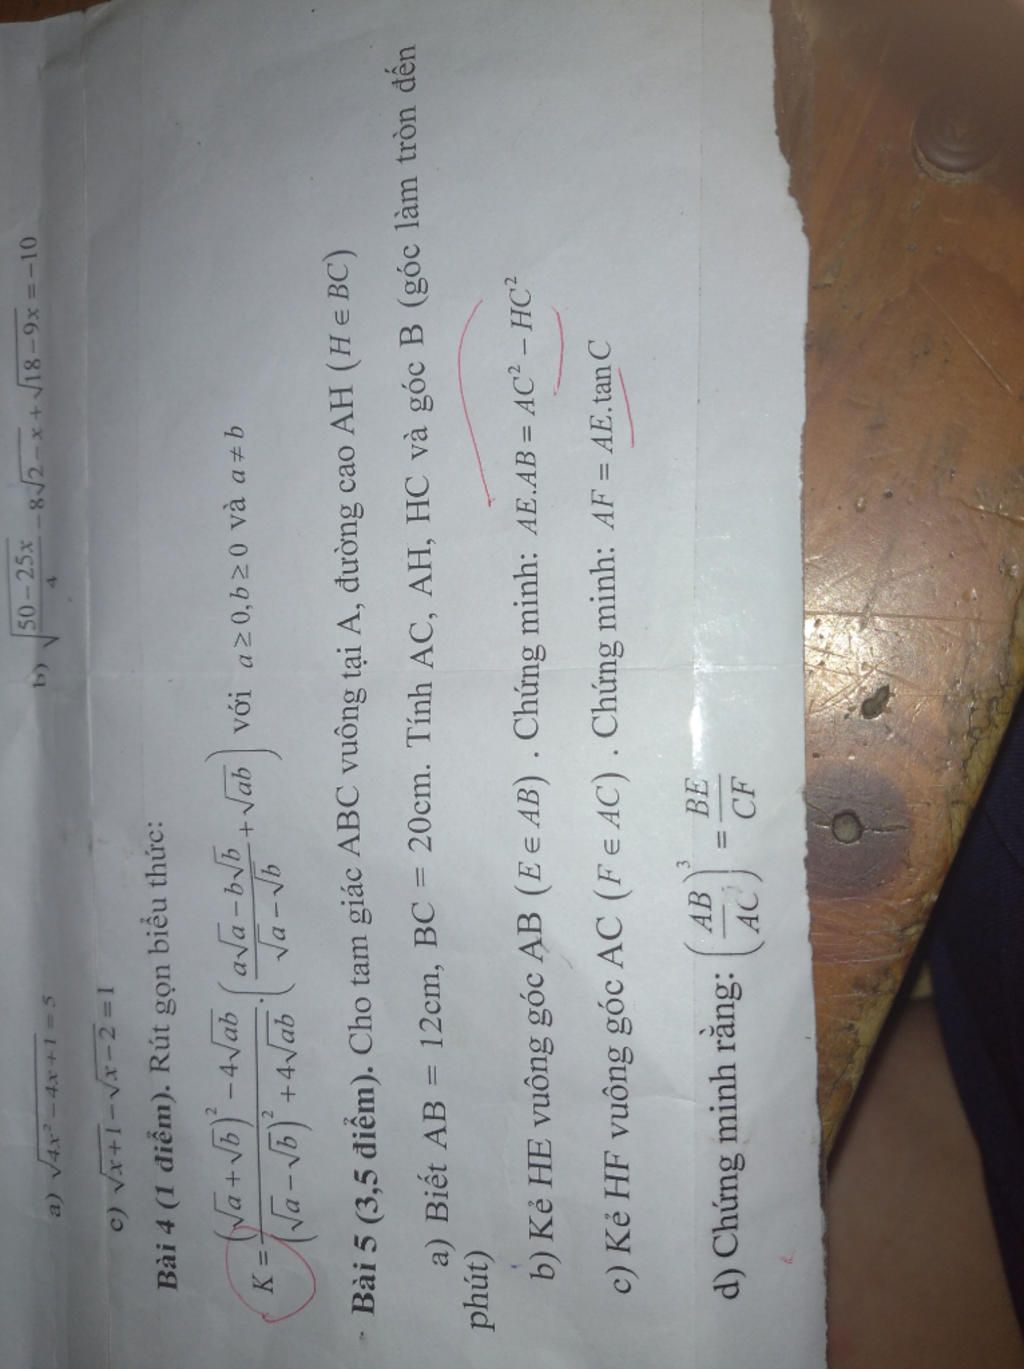 a) √(4x² − 4x + 1) = 5
b) √((50 − 25x)/4) − 8√(2 − x) + √(18 − 9x) = −10
c) √(x + 1) − √(x − 2) = 1
Bài 4 (1 điểm). Rút gọn biểu thức:
K = ((√a + √b)² − 4√ab)/((√a − √b)² + 4√ab) · ((a√a − b√b)/(√a − √b) + √ab) với a ≥ 0, b ≥ 0 và a ≠ b
Bài 5 (3,5 điểm). Cho tam giác ABC vuông tại A, đường cao AH (H ∈ BC)
a) Biết AB = 12cm, BC = 20cm. Tính AC, AH, HC và góc B (góc làm tròn đến
phút)
b) Kẻ HE vuông góc AB (E ∈ AB) . Chứng minh: AE.AB = AC² − HC²
c) Kẻ HF vuông góc AC (F ∈ AC) . Chứng minh: AF = AE.tan C
d) Chứng minh rằng: (AB/AC)³ = BE/CF